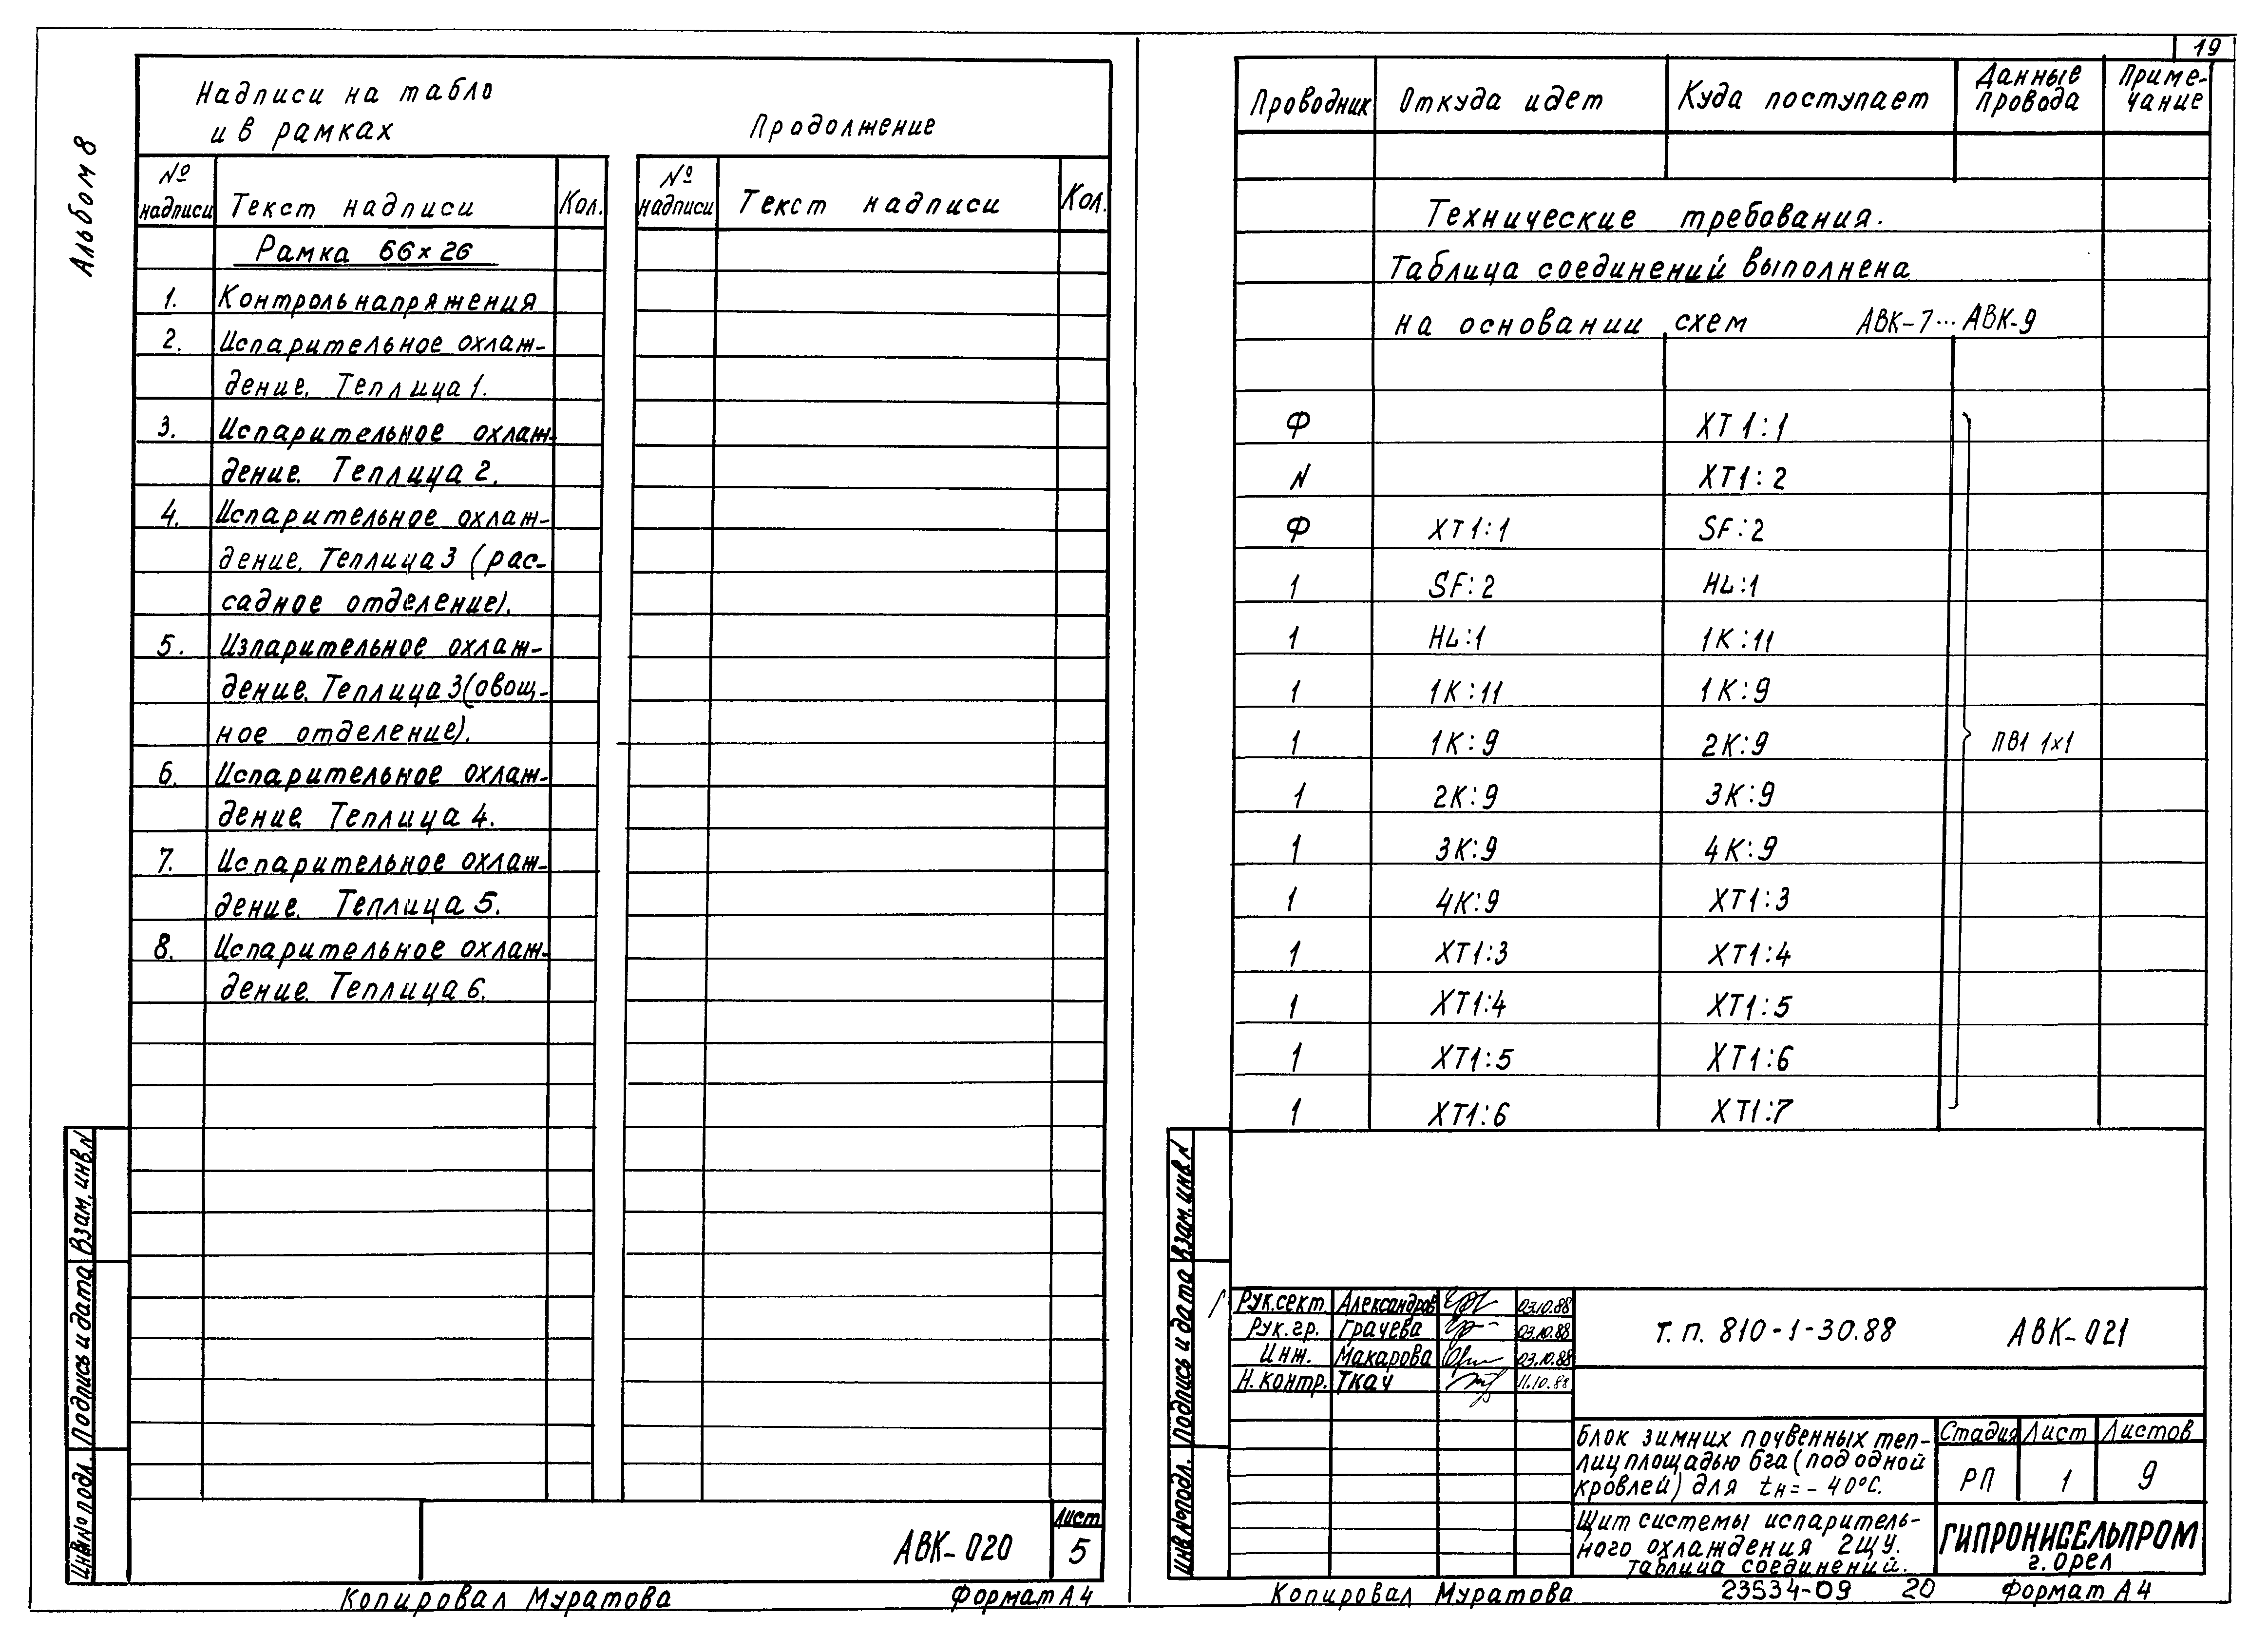 19
Альбом 8
Надписи на табло
и в рамках
Продолжение
№ надписи Текст надписи Кол.
№ надписи Текст надписи Кол.
Рамка 66×26
1. Контроль напряжения
2. Испарительное охлаж-
дение. Теплица 1.
3. Испарительное охлаж-
дение. Теплица 2.
4. Испарительное охлаж-
дение. Теплица 3 (рас-
садное отделение).
5. Изпарительное охлаж-
дение. Теплица 3 (овощ-
ное отделение).
6. Испарительное охлаж-
дение Теплица 4.
7. Испарительное охлаж-
дение. Теплица 5.
8. Испарительное охлаж-
дение. Теплица 6.
Взам. инв. N
Подпись и дата
Инв № подл.
АВК-020
Лист
5
Копировал Муратова
Формат А4
Проводник Откуда идет Куда поступает Данные провода Приме-
чание
Технические требования.
Таблица соединений выполнена
на основании схем АВК-7...АВК-9
Ф ХТ1:1
N ХТ1:2
Ф ХТ1:1 SF:2
1 SF:2 HL:1
1 HL:1 1К:11
1 1К:11 1К:9
1 1К:9 2К:9 ПВ1 1х1
1 2К:9 3К:9
1 3К:9 4К:9
1 4К:9 ХТ1:3
1 ХТ1:3 ХТ1:4
1 ХТ1:4 ХТ1:5
1 ХТ1:5 ХТ1:6
1 ХТ1:6 ХТ1:7
Взам. инв. N
Подпись и дата
Инв. № подл.
Рук. сект. Александров 03.10.88
Рук. гр. Грачева 03.10.88
Инж. Макарова 03.10.88
Н. контр. Ткач 11.10.88
Т. П. 810-1-30.88 АВК-021
Блок зимних почвенных теп-
лиц площадью 6га (под одной
кровлей) для tн=-40°С.
Стадия Лист Листов
РП 1 9
Щит системы испаритель-
ного охлаждения 2ЩУ.
Таблица соединений.
ГИПРОНИСЕЛЬПРОМ
г. Орел
Копировал Муратова
23534-09 20
Формат А4